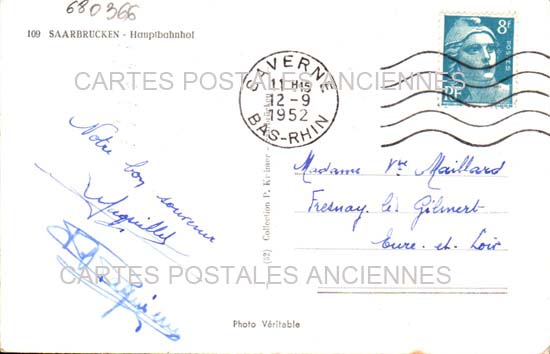 680366
109 SAARBRUCKEN - Hauptbahnhof
8F
POSTES
RF
SAVERNE
11 H15
12-9
1952
BAS-RHIN
CARTES POSTALES ANCIENNES
Notre bon souvenir
Madame Vve Maillard
Fresnay le Gilmert
Eure-et-Loir
(62) Collection P.
CARTES POSTALES ANCIENNES
Photo Véritable